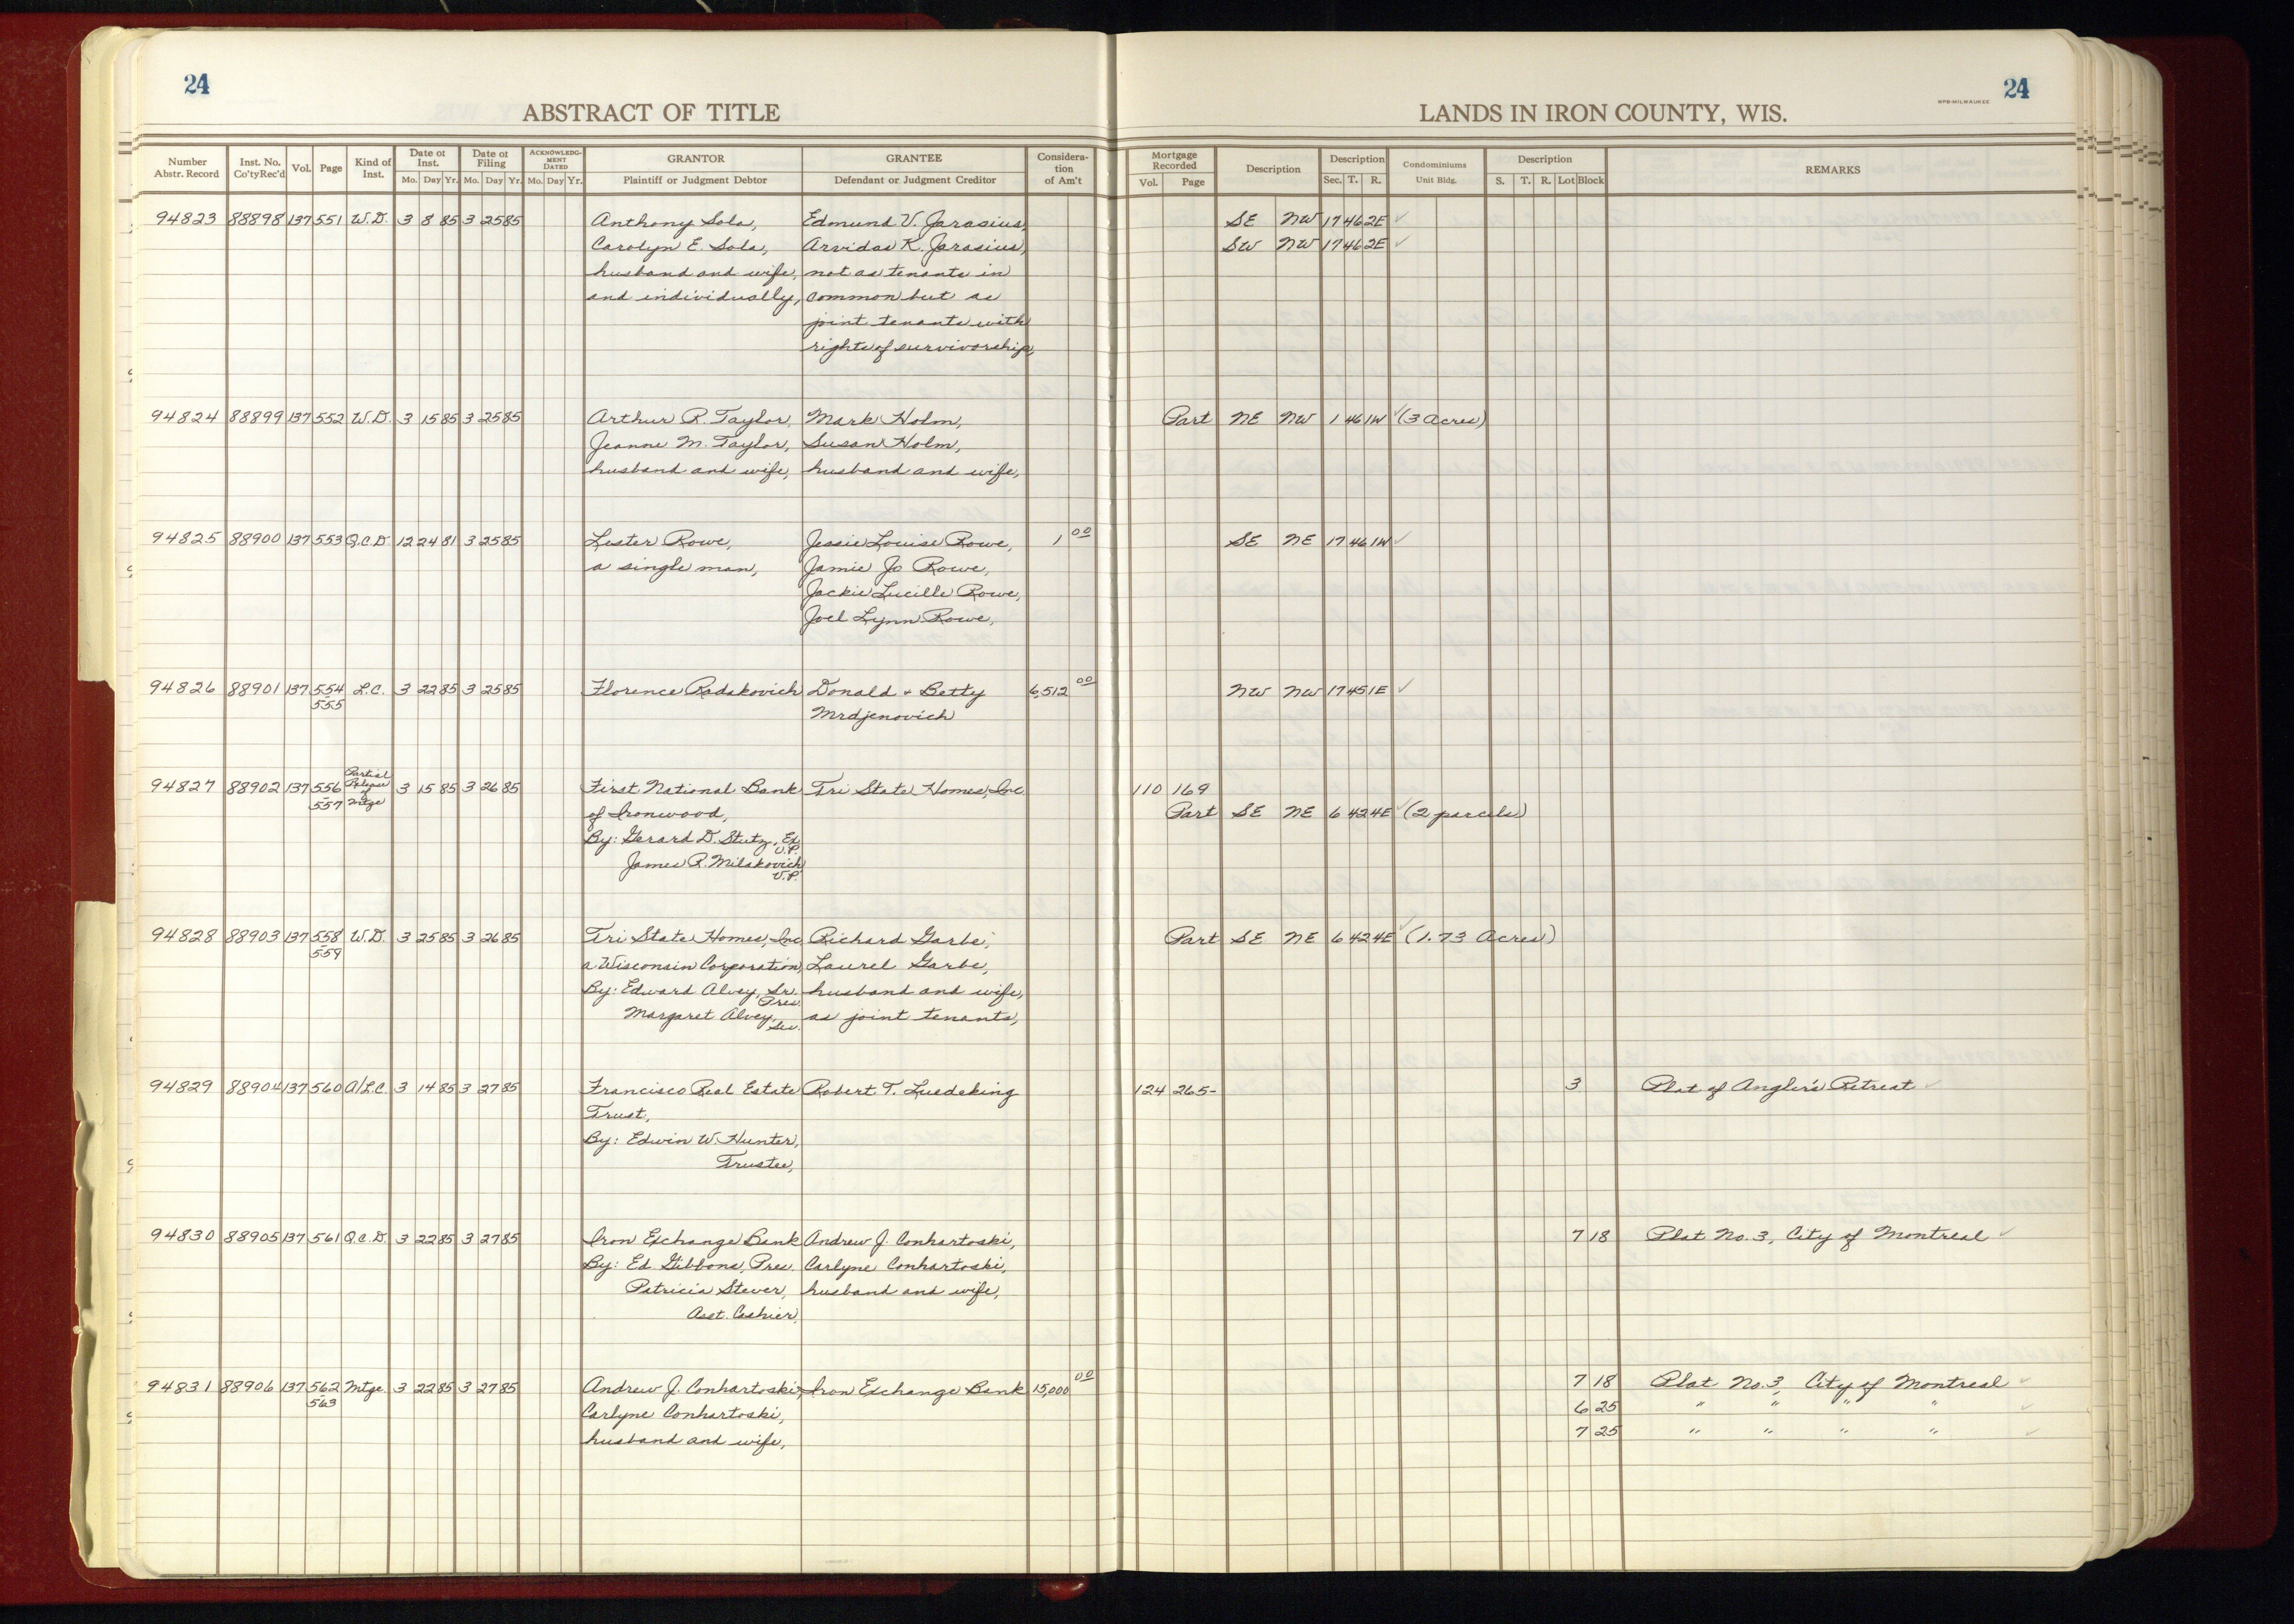 24
24
ABSTRACT OF TITLE
LANDS IN IRON COUNTY, WIS.
WPB-MILWAUKEE
Number Abstr. Record | Inst. No. Co'ty Rec'd | Vol. | Page | Kind of Inst. | Date of Inst. Mo. Day Yr. | Date of Filing Mo. Day Yr. | ACKNOWLEDGMENT DATED Mo. Day Yr. | GRANTOR Plaintiff or Judgment Debtor | GRANTEE Defendant or Judgment Creditor | Consideration of Am't | Mortgage Recorded Vol. Page | Description | Description Sec. T. R. | Condominiums Unit Bldg. | Description S. T. R. Lot Block | REMARKS
94823 88898 137 551 W.D. 3 8 85 3 25 85 Anthony Sola, Edmund V. Jarasius, SE NW 17 46 2E ✓
Carolyn E. Sola, Arvidas K. Jarasius, SW NW 17 46 2E ✓
husband and wife, not as tenants in
and individually, common but as
joint tenants with
rights of survivorship,
94824 88899 137 552 W.D. 3 15 85 3 25 85 Arthur R. Taylor, Mark Holm, Part NE NW 1 46 1W ✓ (3 Acres)
Jeanne M. Taylor, Susan Holm,
husband and wife, husband and wife,
94825 88900 137 553 Q.C.D. 12 24 81 3 25 85 Lester Rowe, Jessie Louise Rowe, 1 00 SE NE 17 46 1W ✓
a single man, Jamie Jo Rowe,
Jackie Lucille Rowe,
Joel Lynn Rowe,
94826 88901 137 554 L.C. 3 22 85 3 25 85 Florence Radakovich Donald + Betty 6,512 00 NW NW 17 45 1E ✓
555 Mrdjenovich
94827 88902 137 556 Partial Release of Mtge 3 15 85 3 26 85 First National Bank Tri State Homes, Inc. 110 169
557 of Ironwood, Part SE NE 6 42 4E ✓ (2 parcels)
By: Gerard D. Stutz, Ex. V.P.
James R. Milakovich V.P.
94828 88903 137 558 W.D. 3 25 85 3 26 85 Tri State Homes, Inc. Richard Garbe, Part SE NE 6 42 4E ✓ (1.73 Acres)
559 a Wisconsin Corporation, Laurel Garbe,
By: Edward Alvey, Sr. Pres. husband and wife,
Margaret Alvey, Sec. as joint tenants,
94829 88904 137 560 A/L.C. 3 14 85 3 27 85 Francisco Real Estate Robert T. Luedeking 124 265- 3 Plat of Angler's Retreat ✓
Trust,
By: Edwin W. Hunter,
Trustee,
94830 88905 137 561 Q.C.D. 3 22 85 3 27 85 Iron Exchange Bank Andrew J. Conhartoski, 7 18 Plat No. 3, City of Montreal ✓
By: Ed Gibbons, Pres. Carlyne Conhartoski,
Patricia Stever, husband and wife,
Asst. Cashier,
94831 88906 137 562 Mtge. 3 22 85 3 27 85 Andrew J. Conhartoski, Iron Exchange Bank 15,000 00 7 18 Plat No. 3, City of Montreal ✓
563 Carlyne Conhartoski, 6 25 " " " " ✓
husband and wife, 7 25 " " " " ✓